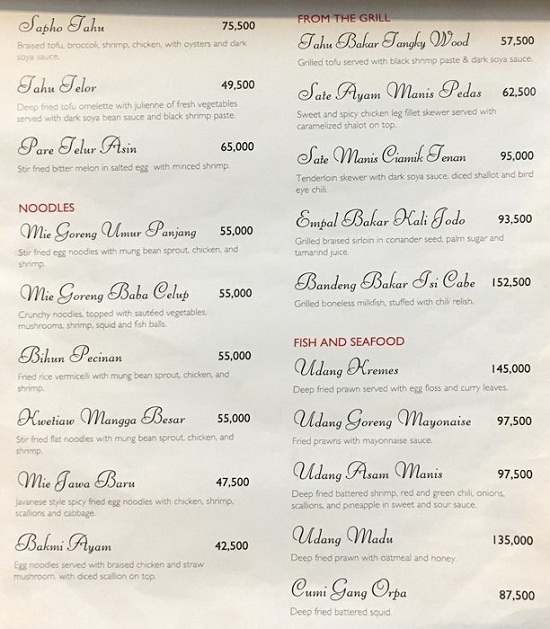 Sapho Tahu 75,500
Braised tofu, broccoli, shrimp, chicken, with oysters and dark
soya sauce.
Tahu Telor 49,500
Deep fried tofu omelette with julienne of fresh vegetables
served with dark soya bean sauce and black shrimp paste.
Pare Telur Asin 65,000
Stir fried bitter melon in salted egg with minced shrimp.
NOODLES
Mie Goreng Umur Panjang 55,000
Stir fried egg noodles with mung bean sprout, chicken, and
shrimp.
Mie Goreng Baba Celup 55,000
Crunchy noodles, topped with sautéed vegetables,
mushrooms, shrimp, squid and fish balls.
Bihun Pecinan 55,000
Fried rice vermicelli with mung bean sprout, chicken, and
shrimp.
Kwetiaw Mangga Besar 55,000
Stir fried flat noodles with mung bean sprout, chicken, and
shrimp.
Mie Jawa Baru 47,500
Javanese style spicy fried egg noodles with chicken, shrimp,
scallions and cabbage.
Bakmi Ayam 42,500
Egg noodles served with braised chicken and straw
mushroom, with diced scallion on top.
FROM THE GRILL
Tahu Bakar Tangky Wood 57,500
Grilled tofu served with black shrimp paste & dark soya sauce.
Sate Ayam Manis Pedas 62,500
Sweet and spicy chicken leg fillet skewer served with
caramelized shalot on top.
Sate Manis Ciamik Tenan 95,000
Tenderloin skewer with dark soya sauce, diced shallot and bird
eye chili.
Empal Bakar Kali Jodo 93,500
Grilled braised sirloin in coriander seed, palm sugar and
tamarind juice.
Bandeng Bakar Isi Cabe 152,500
Grilled boneless milkfish, stuffed with chili relish.
FISH AND SEAFOOD
Udang Kremes 145,000
Deep fried prawn served with egg floss and curry leaves.
Udang Goreng Mayonaise 97,500
Fried prawns with mayonnaise sauce.
Udang Asam Manis 97,500
Deep fried battered shrimp, red and green chili, onions,
scallions, and pineapple in sweet and sour sauce.
Udang Madu 135,000
Deep fried prawn with oatmeal and honey.
Cumi Gang Orpa 87,500
Deep fried battered squid.